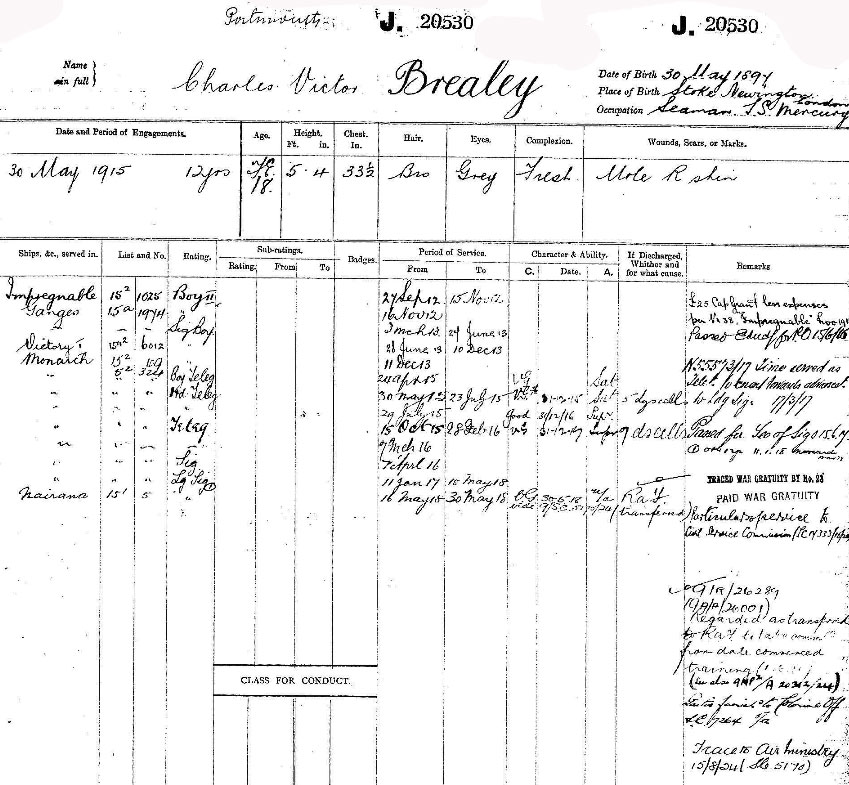 Portsmouth
J. 20530
J. 20530
Name in full } Charles Victor Brealey
Date of Birth 30 May 1897
Place of Birth Stoke Newington London
Occupation Seaman T.S. Mercury
Date and Period of Engagements. Age. Height. Ft. in. Chest. In. Hair. Eyes. Complexion. Wounds, Scars, or Marks.
30 May 1915 12 yrs 18. 5 . 4 33½ Bro Grey Fresh Mole R shin
Ships, &c., served in. List and No. Rating. Sub-ratings. Rating. From To Badges. Period of Service. From To Character & Ability. C. Date. A. If Discharged, Whither and for what cause. Remarks
Impregnable 15² 1025 Boy II 27 Sep 12 15 Nov 12
Ganges 15a 1974 " 16 Nov 12
" " Sig Boy 3 Mch 13 27 June 13
Victory I 15a² 6012 " 28 June 13 10 Dec 13
Monarch 15² 109 " 11 Dec 13
" 5² 324 Boy Teleg 24 Apl 15 VG Sat
" Ord Teleg 30 May 15 23 July 15 VG 31-12-15 Sat 5 dys cells
" " 29 July 15 Good 31/12/16 Supr.
" Teleg 15 Oct 15 28 Feb 16 VG 31-12-17 Supr 9 ds cells
" " 7 Mch 16
" Sig 7 Apl 16
" Lg Sig 11 Jan 17 15 May 18
Nairana 15¹ 5 " 16 May 18 30 May 18 V.G. 30-5-18 R a F (transferred)
£25 Cap Grant less expenses
"Impregnable"
Passed Educ for P.O. 15/6/16
N 5557/3/17 Time served as
Telet. to count towards advancet.
to Ldg Sig. 17/3/17
Passed for Yeo of Sigs 15.6.17
TRACED WAR GRATUITY BY No. 23
PAID WAR GRATUITY
Particulars of service to
Civil Service Commission
G/R/26289
(9A/P/26001)
Regarded as transferred
to RaF
from date commenced
training
Trace to Air Ministry
15/8/24 (Slo 5170)
CLASS FOR CONDUCT.